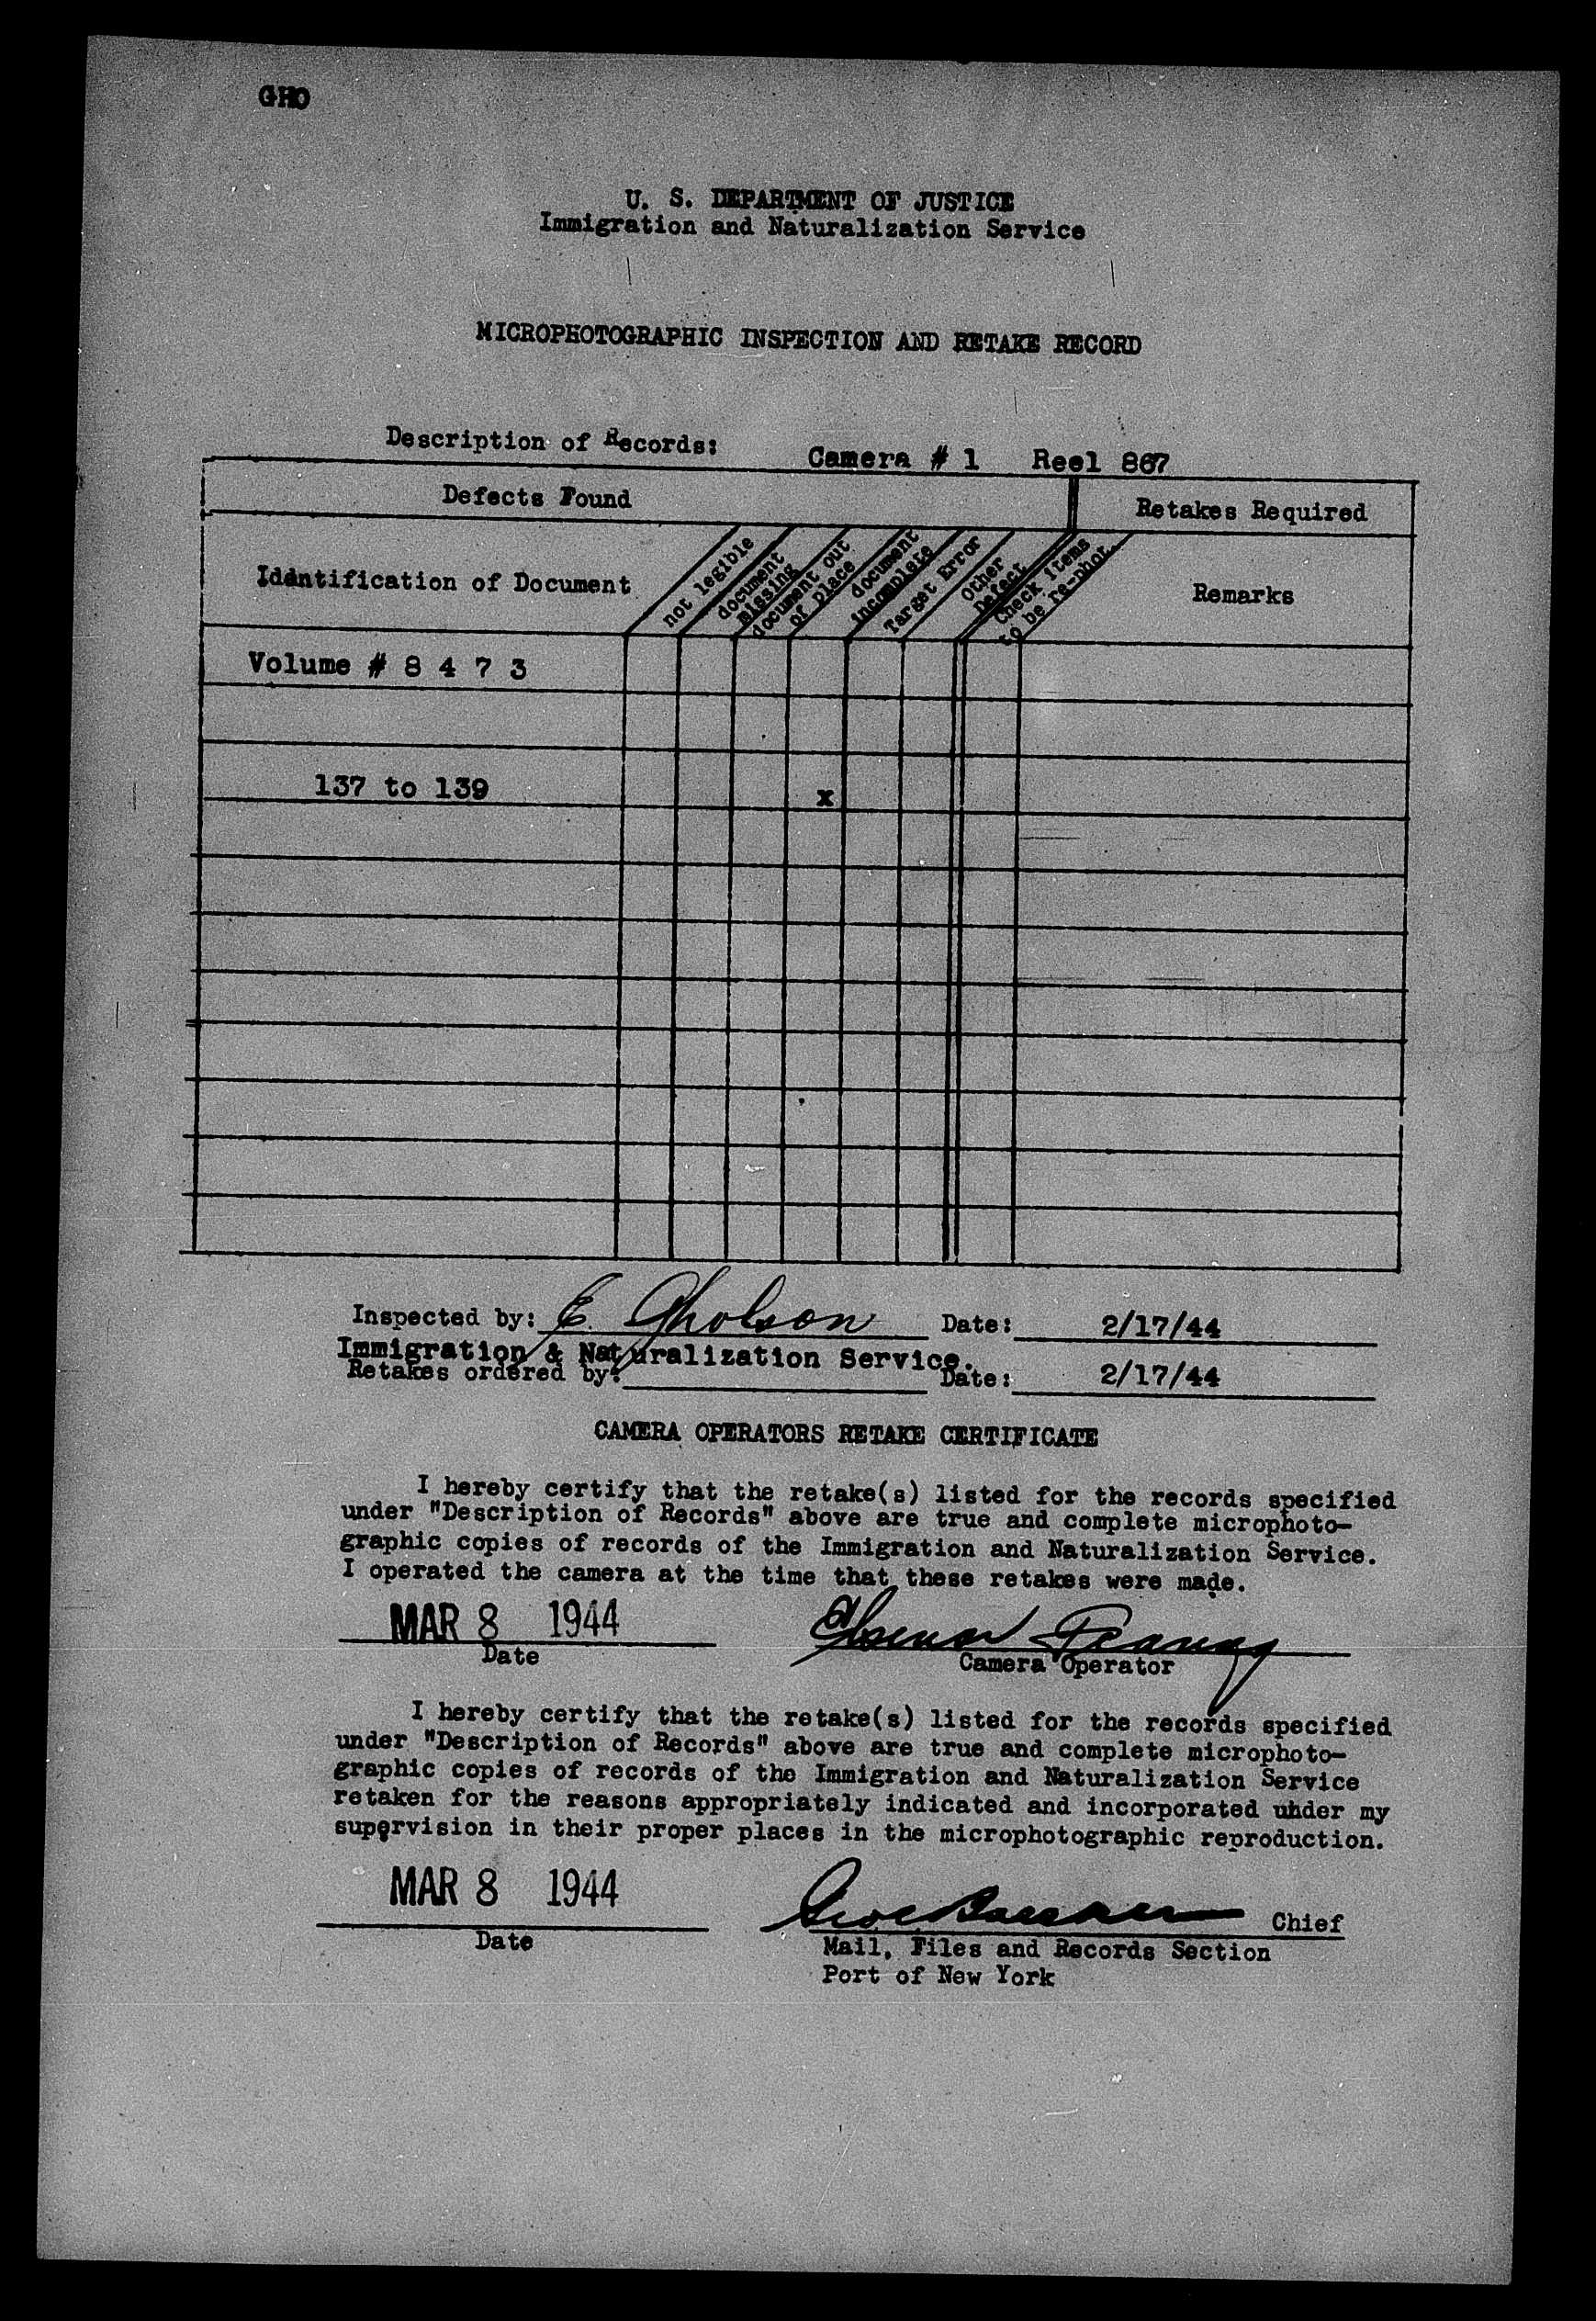 GHO
U. S. DEPARTMENT OF JUSTICE
Immigration and Naturalization Service
MICROPHOTOGRAPHIC INSPECTION AND RETAKE RECORD
Description of Records: Camera # 1 Reel 867
Defects Found
Retakes Required
Identification of Document
not legible
document missing
document out of place
document incomplete
Target Error
Other Defect
Check items to be re-phot.
Remarks
Volume # 8 4 7 3
137 to 139 x
Inspected by: E. Gholson Date: 2/17/44
Immigration & Naturalization Service.
Retakes ordered by: Date: 2/17/44
CAMERA OPERATORS RETAKE CERTIFICATE
I hereby certify that the retake(s) listed for the records specified
under "Description of Records" above are true and complete microphoto-
graphic copies of records of the Immigration and Naturalization Service.
I operated the camera at the time that these retakes were made.
MAR 8 1944
Date
Camera Operator
I hereby certify that the retake(s) listed for the records specified
under "Description of Records" above are true and complete microphoto-
graphic copies of records of the Immigration and Naturalization Service
retaken for the reasons appropriately indicated and incorporated uhder my
supervision in their proper places in the microphotographic reproduction.
MAR 8 1944
Chief
Date
Mail, Files and Records Section
Port of New York